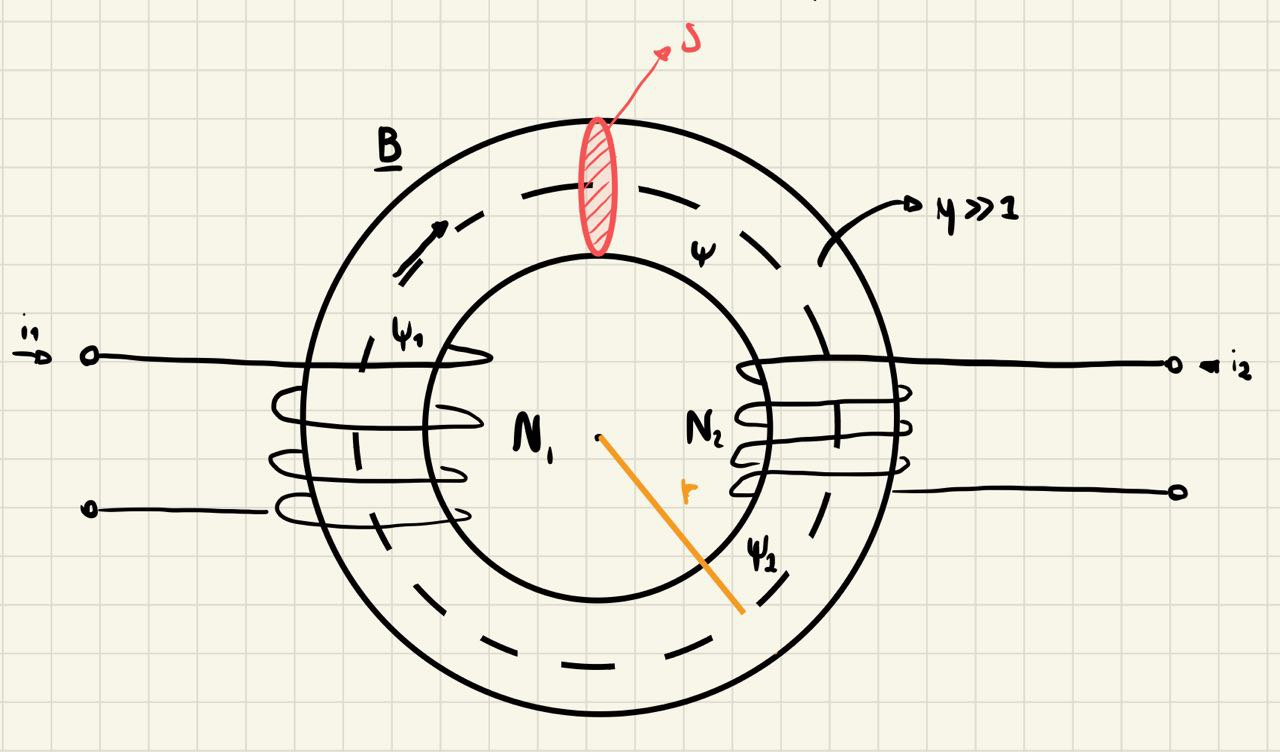 S
B
μ >> 1
ψ
ψ₁
i₁
i₂
N₁
N₂
r
ψ₂